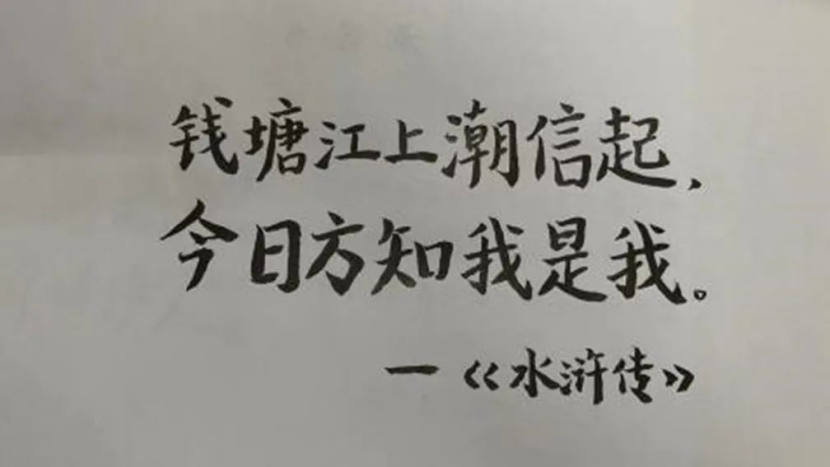 钱塘江上潮信起，
今日方知我是我。
一《水浒传》